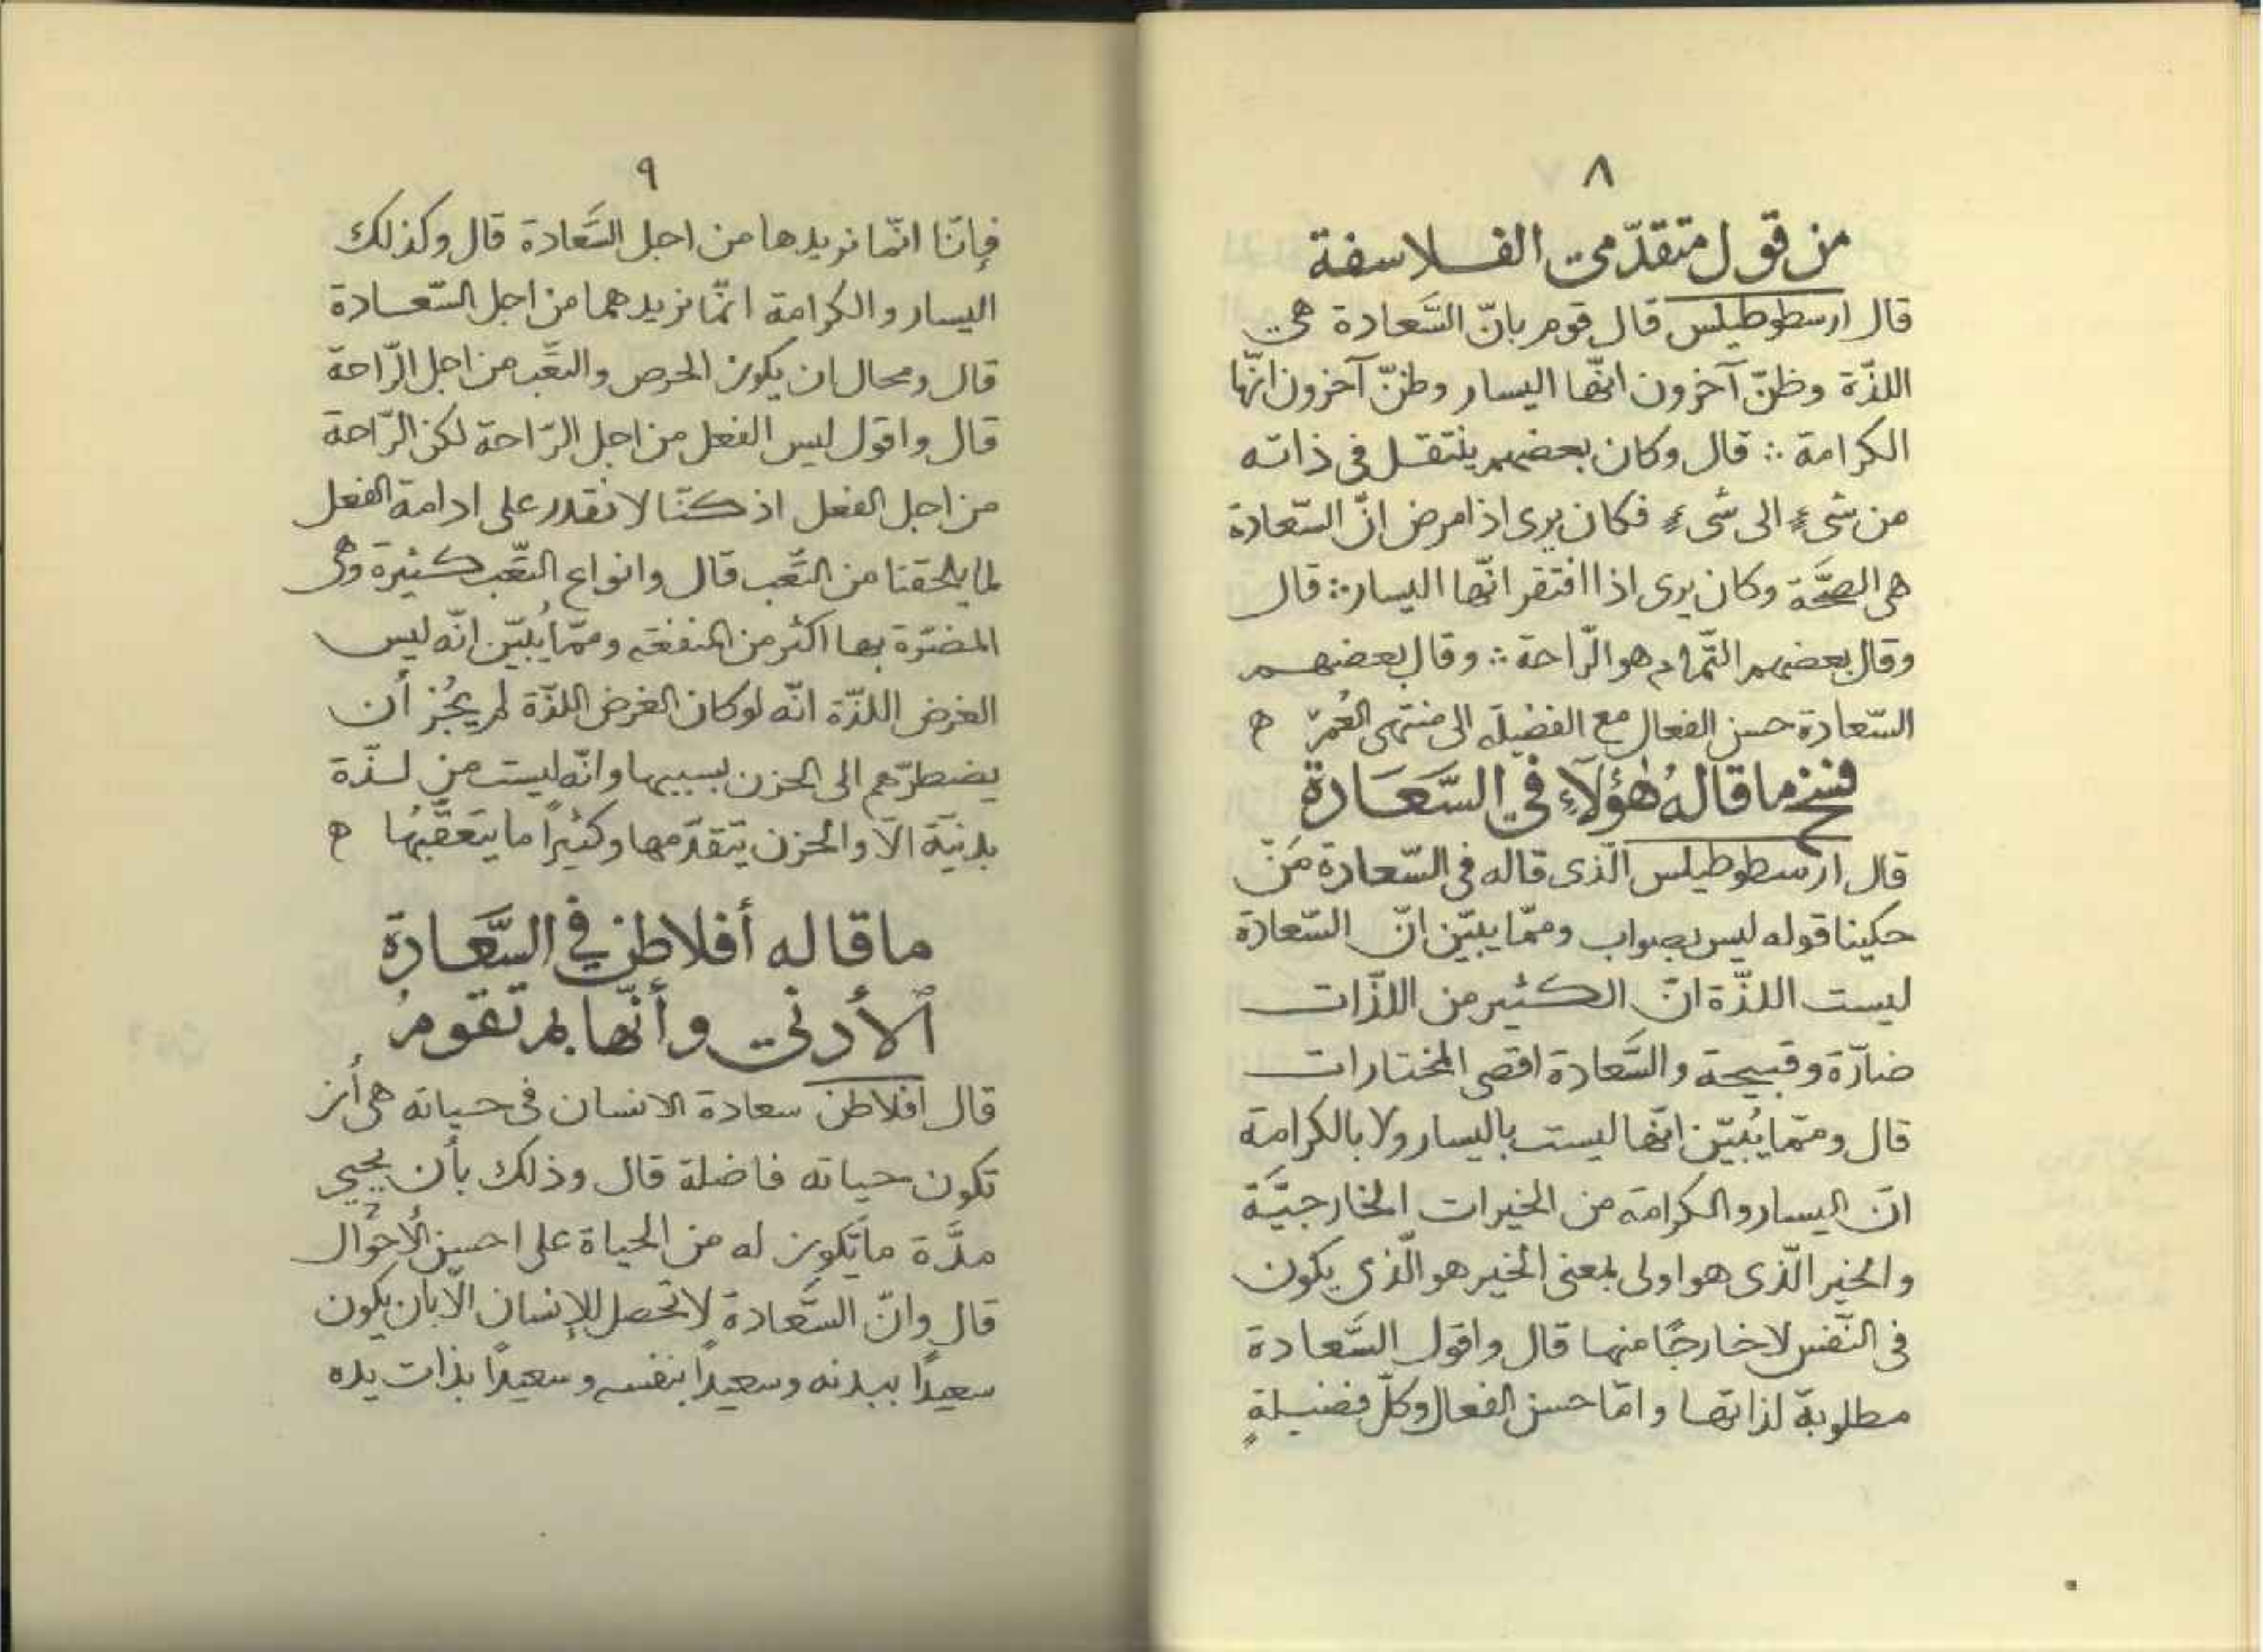 ٨
من قول متقدّمى الفلاسفة
قال ارسطوطيلس قال قوم بانّ السَّعادة هى
اللذّة وظنّ آخرون انّها اليسار وظنّ آخرون انّها
الكرامة ∴ قال وكان بعضهم ينتقل فى ذاته
من شىءٍ الى شىءٍ فكان يرى اذا مرض انّ السّعادة
هى الصحَّة وكان يرى اذا افتقر انّها اليسار ∴ قال
وقال بعضهم التّمام هو الرّاحة ∴ وقال بعضهم
السّعادة حسن الفعال مع الفضيلة الى منتهى العُمرْ ه
فسخ ما قالهُ هٰؤلآءِ في السَّعَادة
قال ارسطوطيلس الّذى قاله فى السّعادة مَنْ
حكينا قوله ليس بصواب وممّا يبيّن انّ السّعادة
ليست اللذّة انّ الكثير من اللذّات
ضارّة وقبيحة والسَّعادة اقصى المختارات
قال وممّا يُبيّن انّها ليست باليسار ولا بالكرامة
انّ اليسار والكرامة من الخيرات الخارجيَّة
والخير الّذى هو اولى بمعنى الخير هو الّذى يكون
فى النّفس لا خارجًا منها قال واقول السَّعادة
مطلوبة لذاتها وامّا حسن الفعال وكلّ فضيلةٍ
٩
فإنّا انّما نريدها من اجل السَّعادة قال وكذلك
اليسار والكرامة انّما نريدهما من اجل السّعادة
قال ومحال ان يكون الحرص والتعَّب من اجل الرّاحة
قال واقول ليس الفعل من اجل الرّاحة لكن الرّاحة
من اجل الفعل اذ كنّا لا نقدر على ادامة الفعل
لما يلحقنا من التَّعب قال وانواع التَّعب كثيرة وهى
المضرّة بها اكثر من المنفعة وممّا يُبيّن انّه ليس
الغرض اللذّة انّه لو كان الغرض اللذّة لم يجُز أن
يضطرّهم الى الحزن بسببها وانّه ليست من لذّة
بدنيّة الّا والحزن يتقدّمها وكثيرًا ما يتعَقَّبهُا ه
ما قاله أفلاطن في السَّعادة
الأدنى وأنّها بم تقومُ
قال افلاطن سعادة الانسان فى حياته هى أن
تكون حياته فاضلة قال وذلك بأن يحيى
مدَّة ما يكون له من الحياة على احسن الأحوال
قال وانّ السَّعادة لا تحصل للإنسان الّا بان يكون
سعيدًا ببدنه وسعيدًا بنفسه وسعيدًا بذات يده